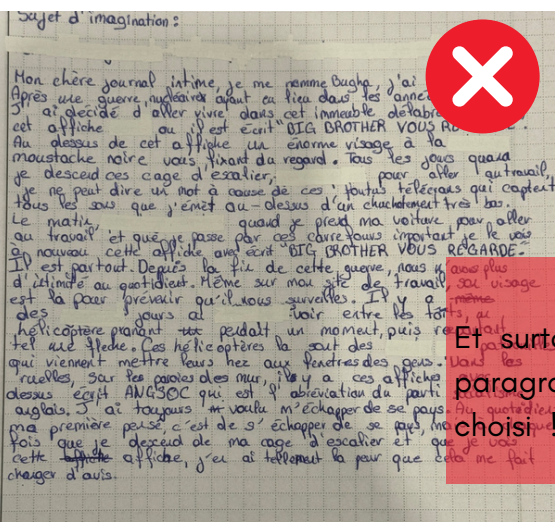 Sujet d'imagination :
Mon chère journal intime, je me nomme Bugha, j'ai
Après une guerre nucléaire ayant eu lieu dans les anné
J'ai décidé d'aller vivre dans cet immeuble délabré
cet affiche ou il est écrit "BIG BROTHER VOUS RE
Au dessus de cet affiche un énorme visage à la
moustache noire vous fixant du regard. Tous les jours quand
je descend ces cage d'escalier, pour aller au travail
je ne peut dire un mot à cause de ces foutus télécrans qui captent
tous les sons que j'émet au-dessus d'un chuchotement très bas.
Le matin quand je prend ma voiture pour aller
au travail et que je passe par ces carrefours important je le vois
à nouveau cette affiche avec écrit "BIG BROTHER VOUS REGARDE."
Il est partout. Depuis la fin de cette guerre, nous n'avons plus
d'intimité au quotidien. Même sur mon site de travail, son visage
est la pour prévenir qu'il nous surveilles. Il y a même
des jours at voir entre les toits, un
hélicoptère planant pendant un moment, puis
tel une fleche. Ces hélicoptères la sont des
qui viennent mettre leurs nez aux fenetres des gens. Dans les
ruelles, sur les parois des mur, il y a ces affiches avec
dessus écrit ANGSOC qui est l'abréviation du parti
anglais. J'ai toujours voulu m'échapper de se pays. Au quotidien
ma première pensé, c'est de s'échapper de se pays, ma
fois que je descend de ma cage d'escalier et que je vois
cette affiche affiche, j'en ai tellement la peur que cela me fait
changer d'avis.
Et surto
paragra
choisi !